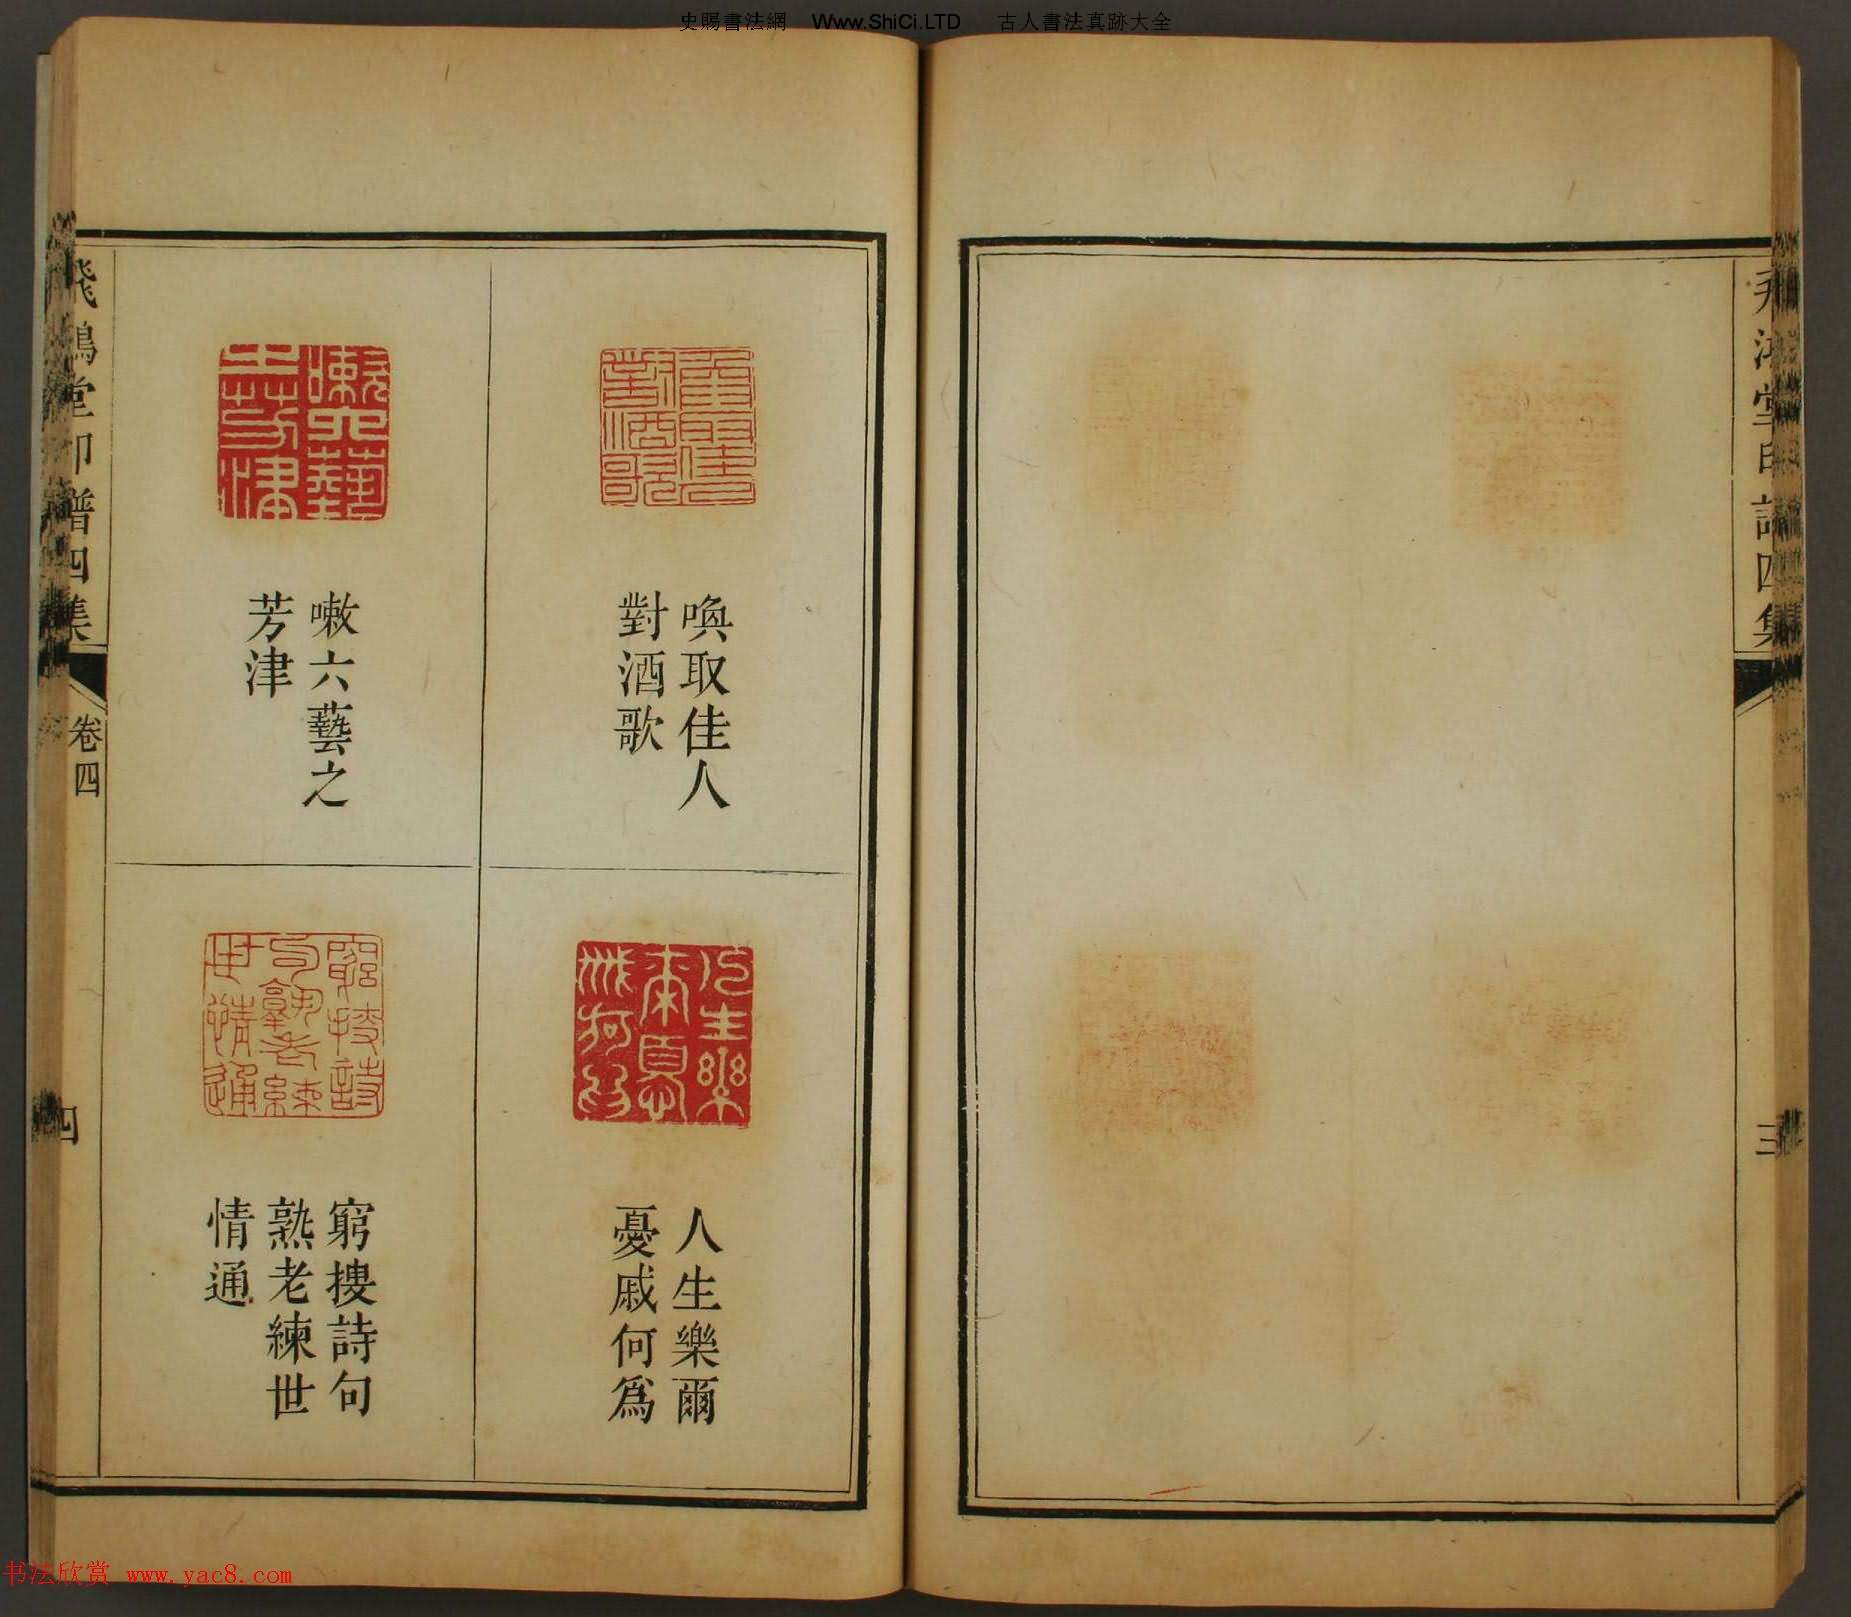 史賜書法網 Www.ShiCi.LTD 古人書法真跡大全
飛鴻堂印譜四集
三
喚取佳人
對酒歌
嗽六藝之
芳津
人生樂爾
憂戚何爲
窮搜詩句
熟老練世
情通
飛鴻堂印譜四集
卷四
四
书法欣赏 www.yac8.com